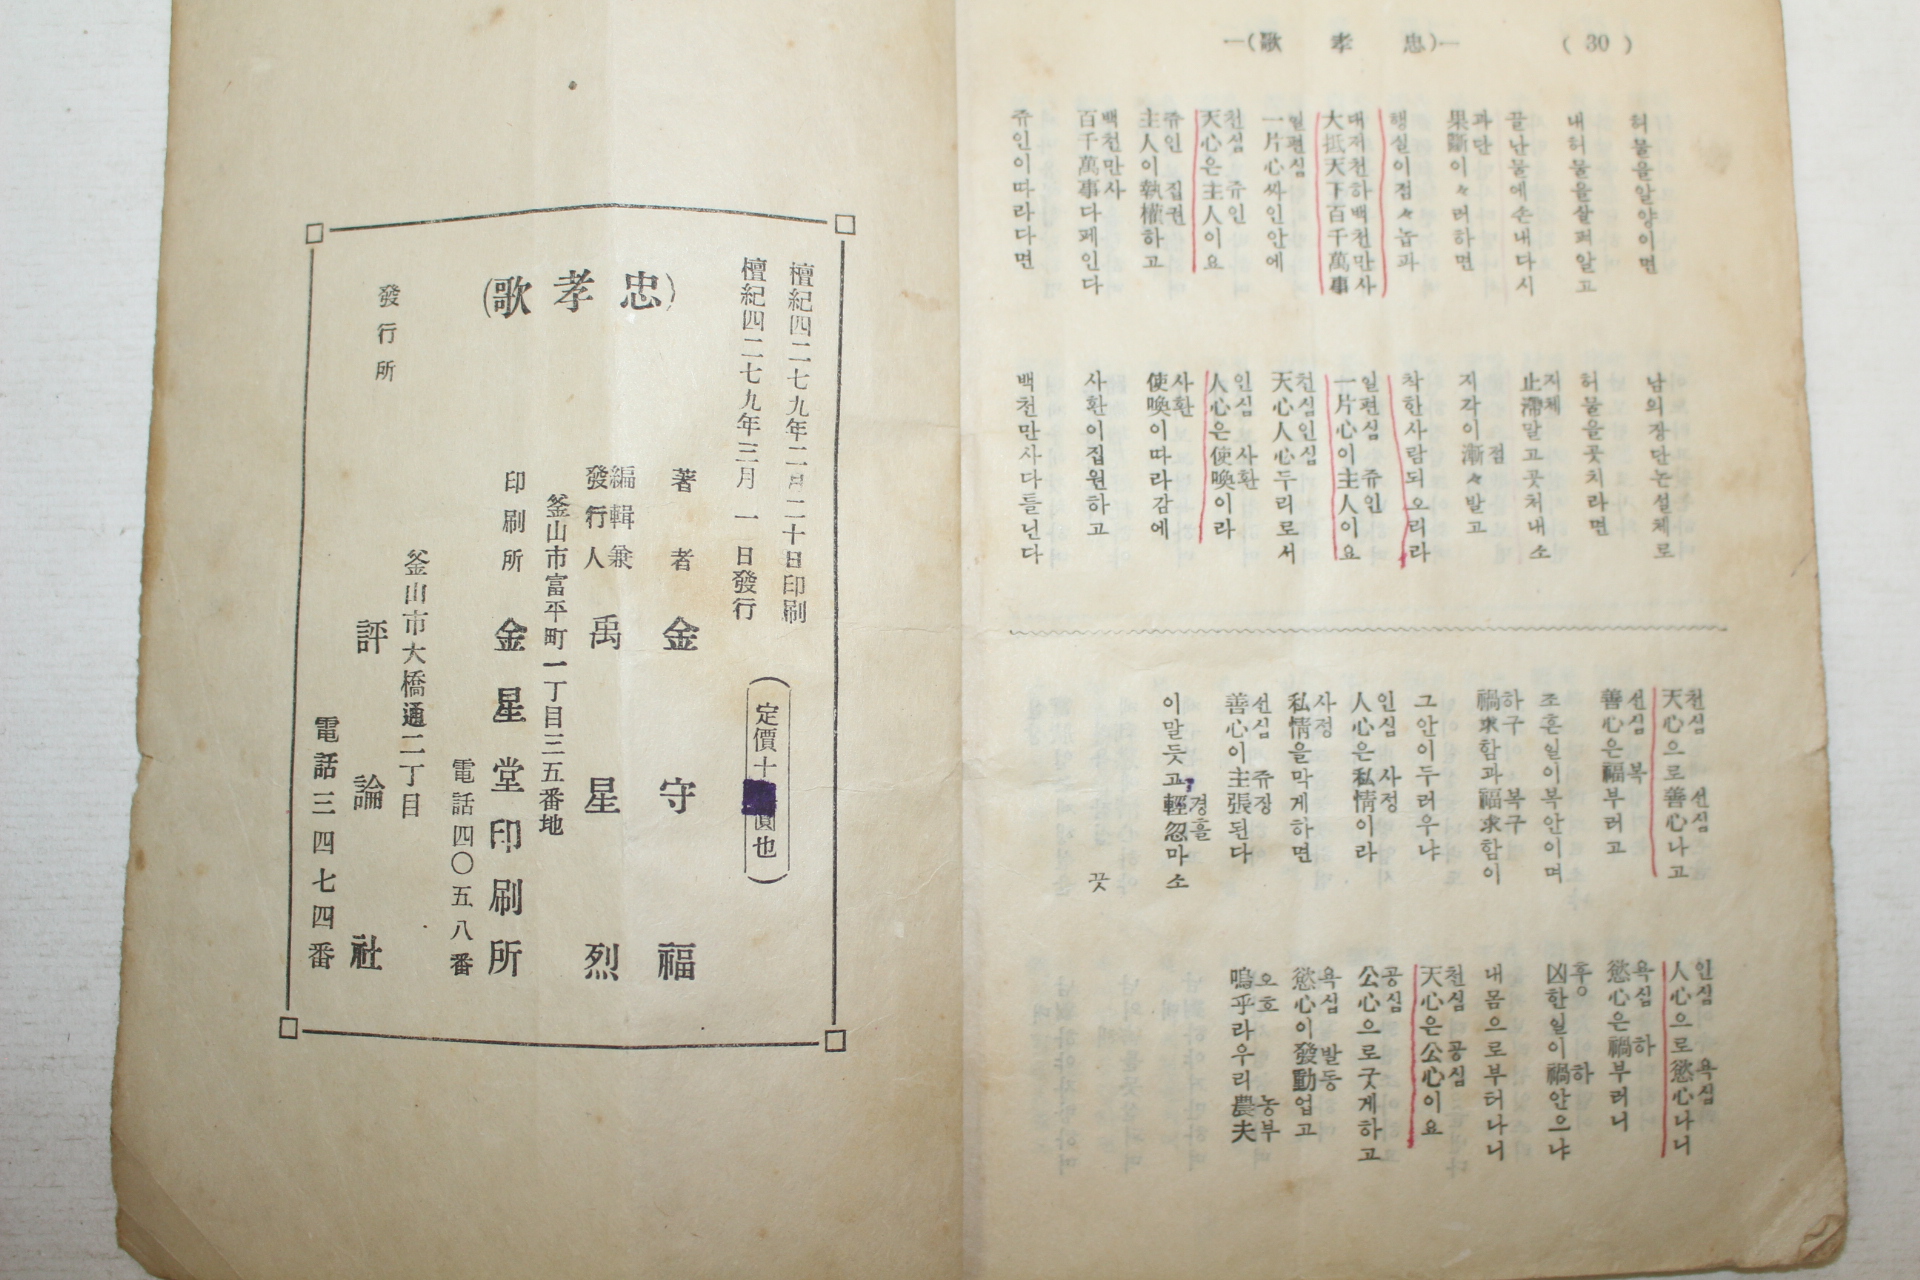 (30) —(忠孝歌)—
허물을알양이면
남의장단논설체로
내허물을살펴알고
허물을곳치라면
끌난물에손내다시
지체
止滯말고곳처내소
과단
果斷이々러하면
점
지각이漸々발고
행실이점々놉과
착한사람되오리라
대저천하백천만사
大抵天下百千萬事
일편심 쥬인
一片心이主人이요
일편심
一片心싸인안에
천심인심
天心人心두리로서
천심 쥬인
天心은主人이요
인심 사환
人心은使喚이라
쥬인 집권
主人이執權하고
사환
使喚이따라감에
백천만사
百千萬事다폐인다
사환이집원하고
쥬인이따라다면
백천만사다틀닌다
천심 선심
天心으로善心나고
인심 욕심
人心으로慾心나니
선심 복
善心은福부러고
욕심 하
慾心은禍부러니
조흔일이복안이며
흉 하
凶한일이禍안으냐
하구 복구
禍求함과福求함이
내몸으로부터나니
그안이두러우냐
천심 공심
天心은公心이요
인심 사정
人心은私情이라
공심
公心으로굿게하고
사정
私情을막게하면
욕심 발동
慾心이發動업고
선심 쥬장
善心이主張된다
오호 농부
嗚乎라우리農夫
경홀
이말듯고輕忽마소
끗
檀紀四二七九年二月二十日印刷
檀紀四二七九年三月一日發行
(定價十 價也)
(忠孝歌)
著者 金守福
編輯兼
發行人 禹星烈
釜山市富平町一丁目三五番地
印刷所 金星堂印刷所
電話四〇五八番
釜山市大橋通二丁目
發行所 評論社
電話三四七四番